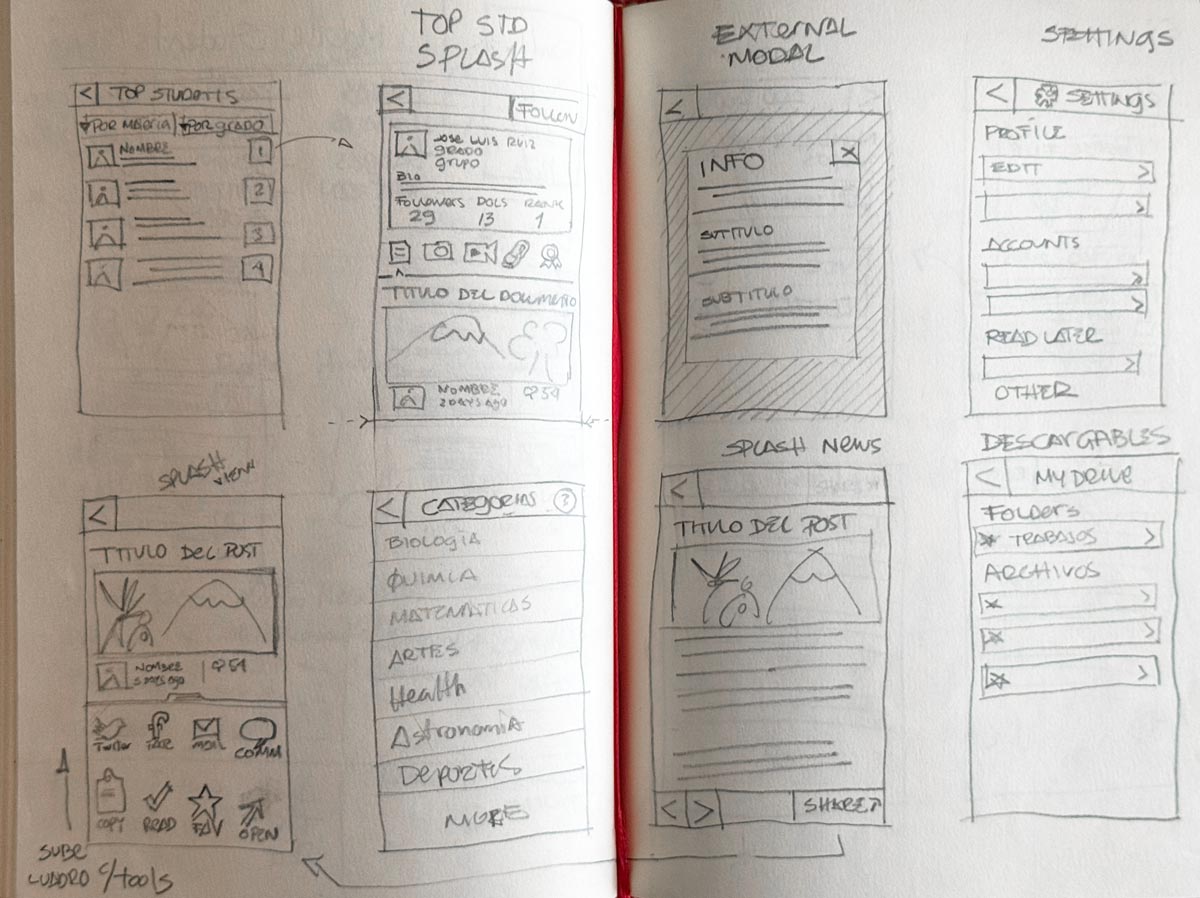 TOP STUDENTS
POR MATERIA POR GRADO
NOMBRE
1
2
3
4
TOP STD
SPLASH
Follow
JOSE LUIS RUIZ
GRADO
GRUPO
BIO
Followers DOCS RANK
29 13 1
TITULO DEL DOCUMENTO
NOMBRE
2 DAYS AGO
54
EXTERNAL
MODAL
INFO
X
SUBTITULO
SUBTITULO
SETTINGS
SETTINGS
PROFILE
EDIT
ACCOUNTS
READ LATER
OTHER
SPLASH
VIEW
TITULO DEL POST
NOMBRE
54
Twitter FACE MAIL COMM
COPY READ FAV OPEN
SUBE
CUADRO c/tools
CATEGORIAS
BIOLOGIA
QUIMICA
MATEMATICAS
ARTES
Health
Astronomia
Deportes
MORE
SPLASH NEWS
TITULO DEL POST
SHARE
DESCARGABLES
MY DRIVE
Folders
TRABAJOS
ARCHIVOS